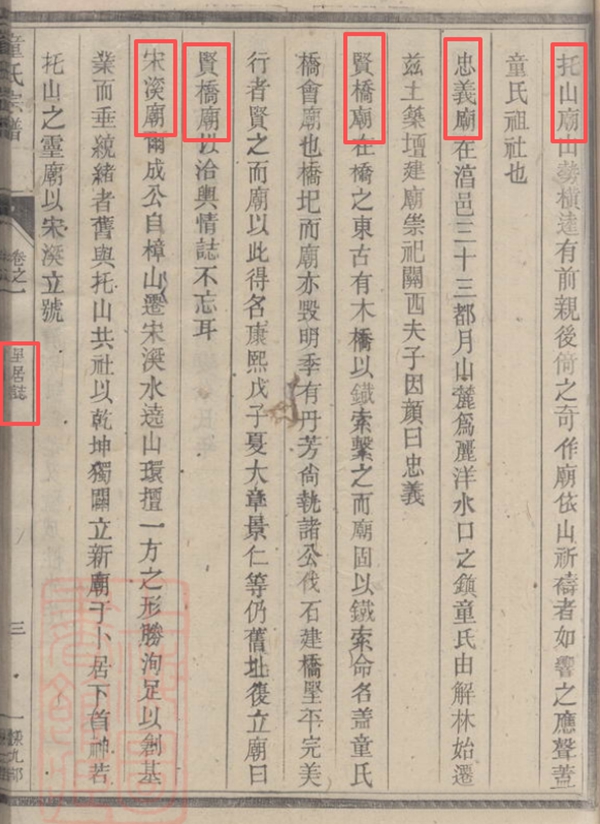 托山廟山勢橫遠有前親後倚之奇作廟依山祈禱者如響之應聲蓋
童氏祖社也
忠義廟在萡邑三十三都月山麓爲麗洋水口之鎮童氏由解林始遷
兹土築壇建廟崇祀關西夫子因顏曰忠義
賢橋廟在橋之東古有木橋以鐵索繫之而廟固以鐵索命名蓋童氏
橋會廟也橋圯而廟亦毀明季有丹芳尚執諸公伐石建橋堅平完美
行者賢之而廟以此得名康熙戊子夏大章景仁等仍舊址復立廟曰
賢橋廟以洽輿情誌不忘耳
宋渓廟爾成公自樟山遷宋渓水遶山環擅一方之形勝洵足以創基
業而垂統緒者舊與托山共社以乾坤獨闢立新廟于卜居下首神若
托山之靈廟以宋渓立號
童氏宗譜
卷之一
里居誌
三